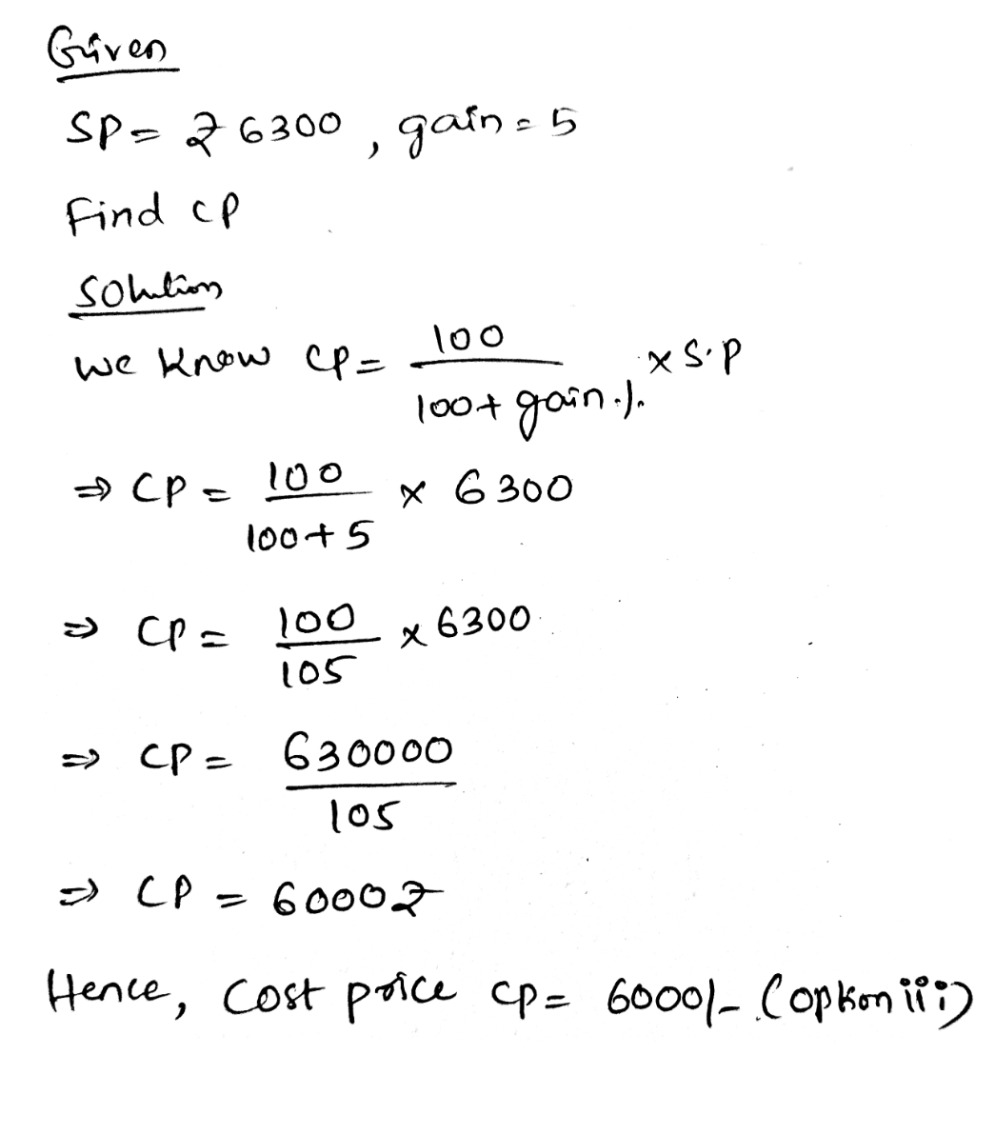 Given
SP = ₹ 6300, gain = 5
Find CP
Solution
We Know CP = 100 / 100 + gain % × S.P
⇒ CP = 100 / 100 + 5 × 6300
⇒ CP = 100 / 105 × 6300
⇒ CP = 630000 / 105
⇒ CP = 6000₹
Hence, Cost price CP = 6000/- (option iii)